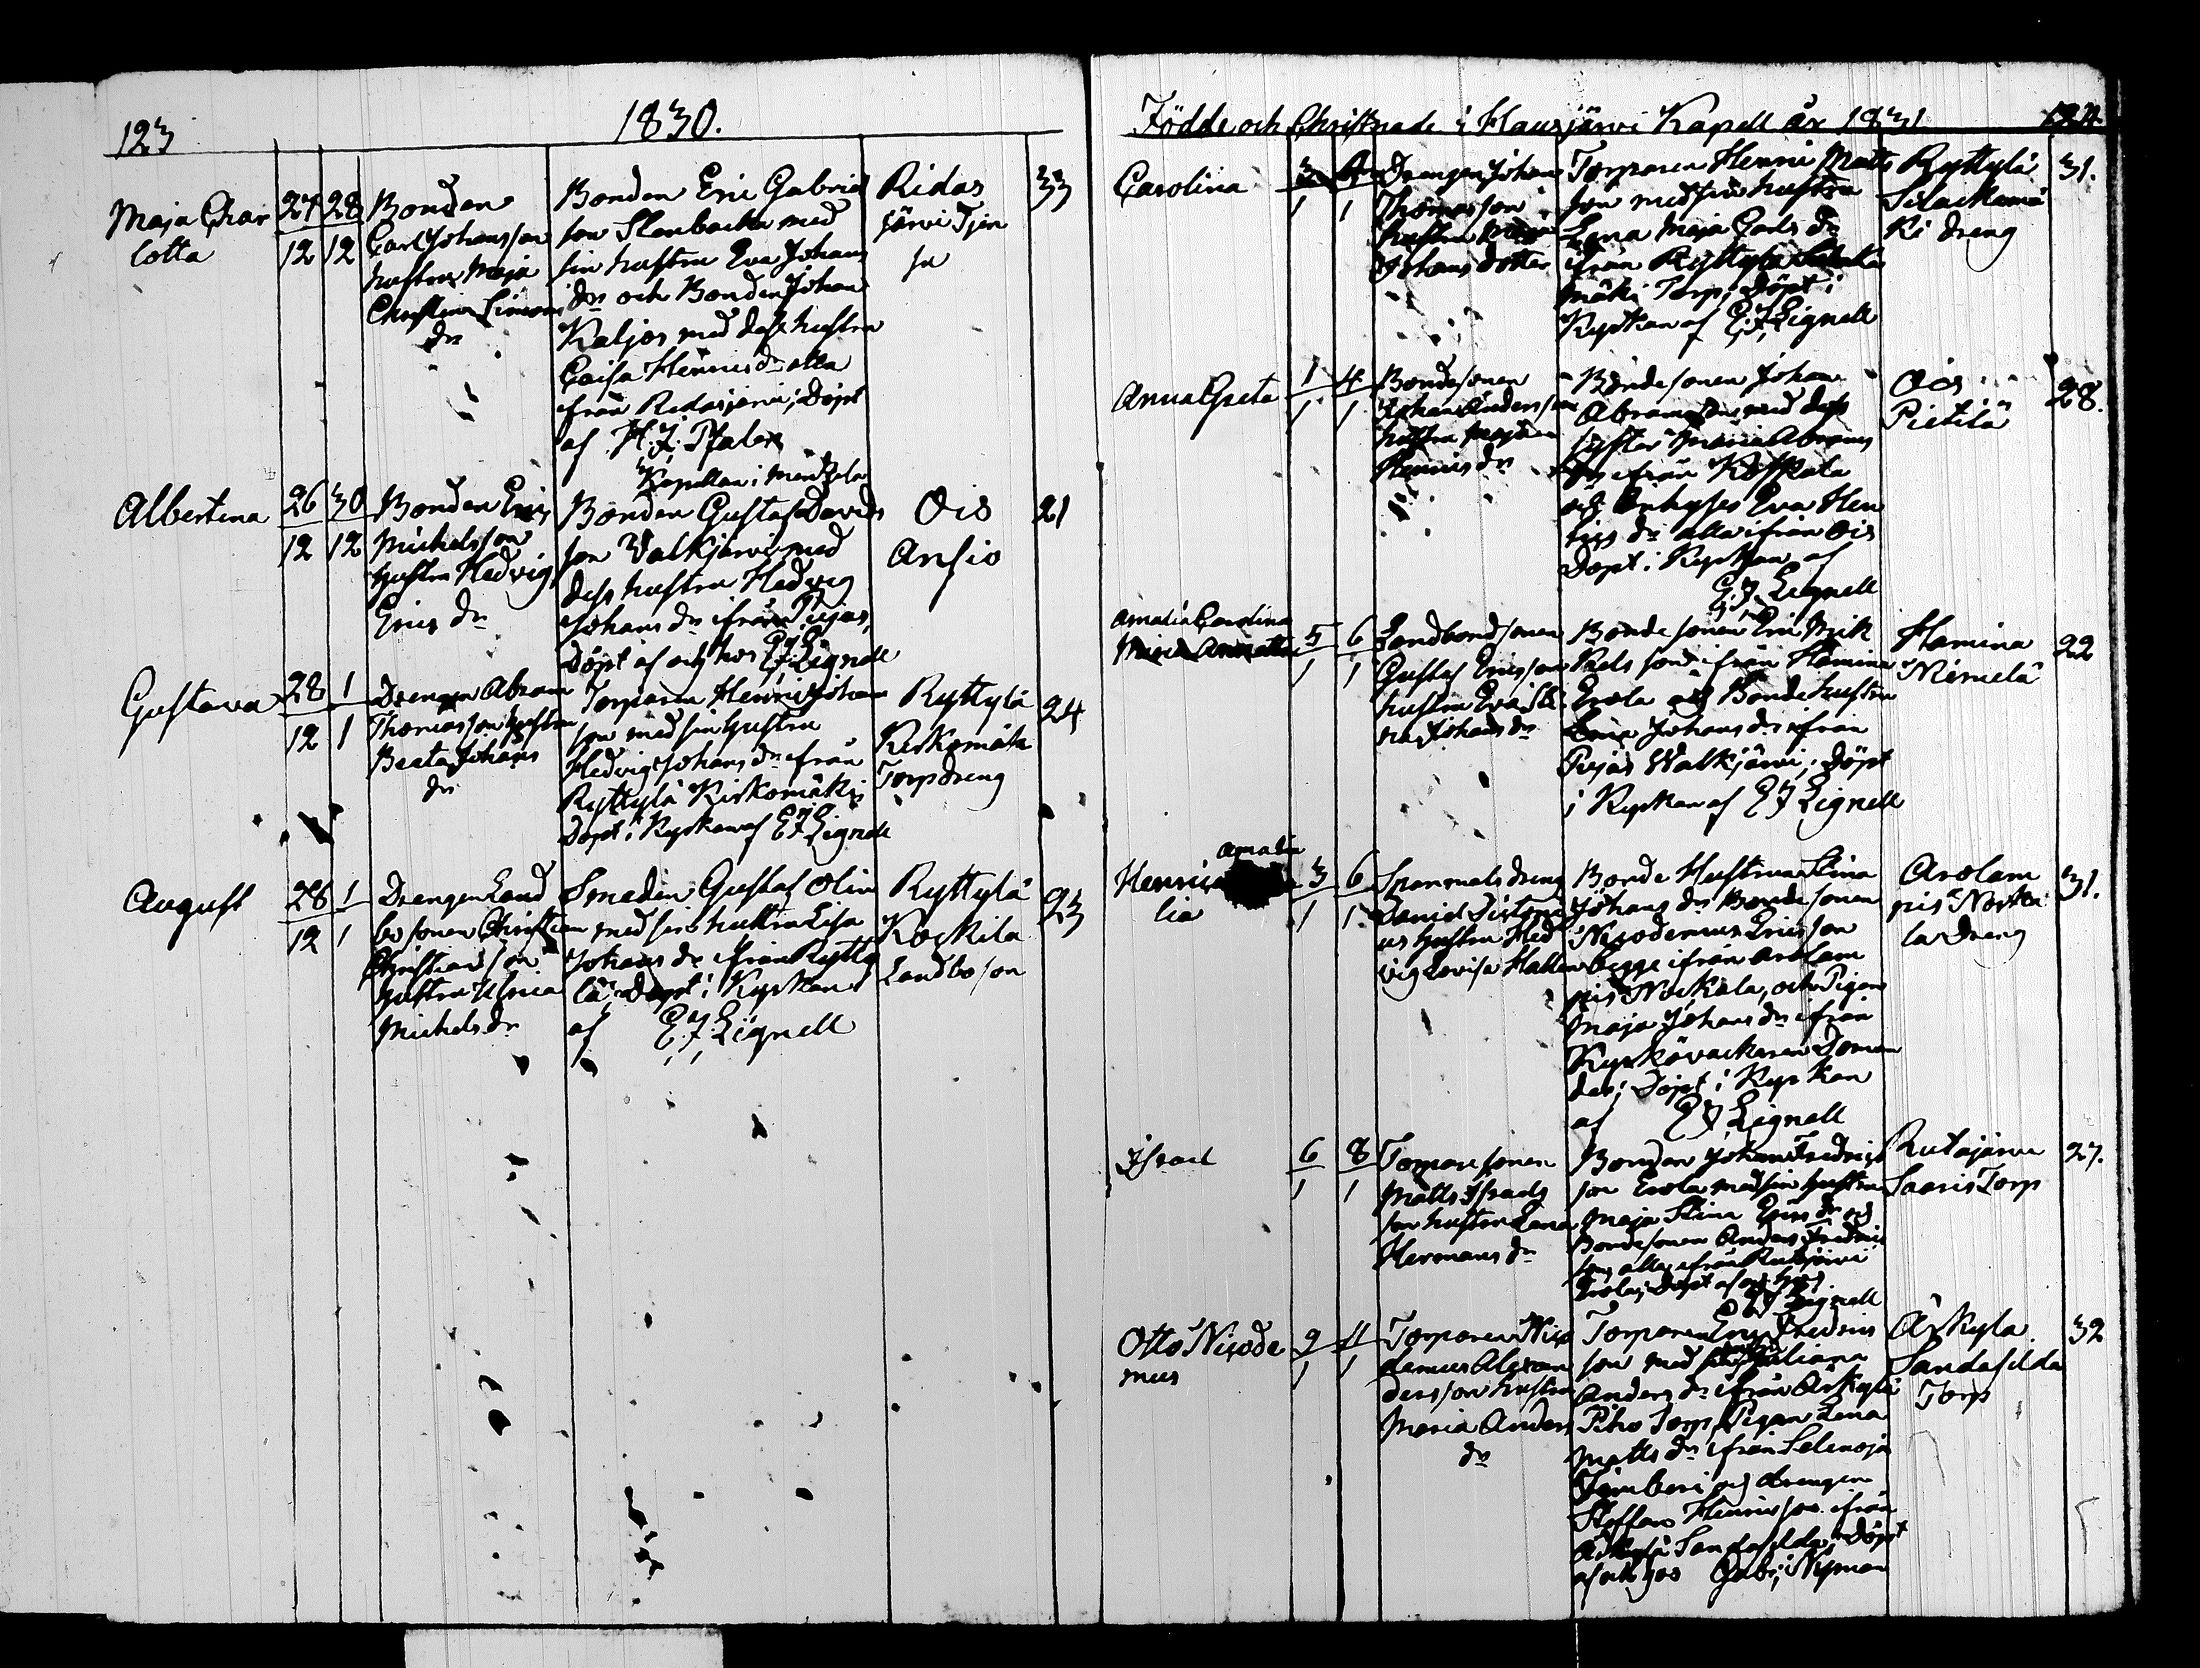 123
1830.
Maja Char
lotta
27 28
12 12
Bonden
Carl Johansson
hustru Maja
Christina Simons
dr
Bonden Eric Gabriel
son Stenbacka med
sin hustru Eva Johans
dr och Bonden Johan
Kaljos med dess hustru
Caisa Henricsdr alla
ifrån Ridasjärvi; Döpt
af H. J. Pfaler
Kapellan i Mentzelæ
Ridas
järvi
33
Albertina
26 30
12 12
Bonden Eric
Michelsson
hustru Hedvig
Erics dr
Bonden Gustaf Davids
son Valkjärvi med
dess hustru Hedvig
Johans dr ifrån Pujas,
Döpt af och hos E J Lignell
Ois
Ansio
21
Gustava
28 1
12 1
Drengen Abram
Thomasson hustru
Beata Johans
dr
Torparen Henric Johans
son med sin hustru
Hedvig Johans dr ifrån
Ryttylä Kirkomäki;
Döpt i Kyrkan af E J Lignell
Ryttylä
Kirkomäki
Torp dreng
24
August
28 1
12 1
Drengen Land
bo sonen Christian
Christiansson
hustru Ulrica
Michels dr
Smeden Gustaf Olin
med sin hustru Lisa
Johans dr ifrån Rytty
lä; Döpt i Kyrkan
af E. J. Lignell
Ryttylä
Kockila
Landbo son
23
Födde och Christnade i Hausjärvi Kapell År 1831.
124
Carolina
1 1
Drengen Johan
Thomasson
hustru
Johans dotter
Torparen Henric Matts
son med sin hustru
Lena Maja Carls dr
ifrån Ryttylä
mäki Torp; Döpt i
Kyrkan af E. J. Lignell
Ryttylä
dreng
31.
Anna Greta
1 4
1 1
Bondesonen
Johan Andersson
hustru Maja
Henrics dr
Bondesonen Johan
Abramsson med dess
syster Maria Abrams
dr ifrån
och Inhyses Eva Hen
rics dr alla ifrån Ois
Döpt i Kyrkan af
E. J. Lignell
Ois
Pietilä
28.
Amalia Carolina
5 6
1 1
Landbondsonen
Gustaf Ericsson
hustru Eva Sti
na Johans dr
Bondesonen Eric Mik
kels son ifrån Hamina
Erola och Bonde hustru
Johans dr ifrån
Pujas Walkjärvi; Döpt
i Kyrkan af E J Lignell
Hamina
Nimelä
22
Amalia
Henrica
lia
3 6
1 1
Spanmals dreng
David
hustru Hed
vig Lovisa Hallen
Bonde Hustrun Stina
Johans dr Bondesonen
Nicodemus Ericsson
begge ifrån Arolam
pis Nockala, och Pigan
Maja Johans dr ifrån
Döpt i Kyrkan
af E J Lignell
Arolam
pis
la Dreng
31.
Israel
6 8
1 1
Torparesonen
Matts Israels
son hustru Lena
Hermans dr
Bonden Johan Fredrics
son Erola med sin hustru
Maja Stina Erics dr och
Bondesonen Anders Fredrics
son alla ifrån Rutajärvi
Erola; Döpt af och hos
E J Lignell
Rutajärvi
Saaris Torp
27.
Otto Nicode
mus
9 11
1 1
Torparen Nico
demus Alexan
dersson hustru
Maria Anders
dr
Torparen Eric Fredrics
son med Juliana
Anders dr ifrån Arkylä
Torp, Pigan Lena
Matts dr ifrån Selinoja
och drengen
Staffan Henricsson ifrån
Döpt
af och hos Gabr. Nyman
Torp
32